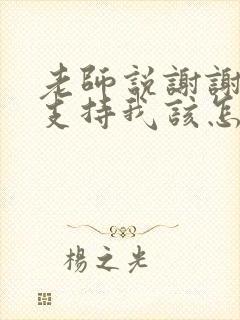 老師説謝謝
支持我該怎
楊之光